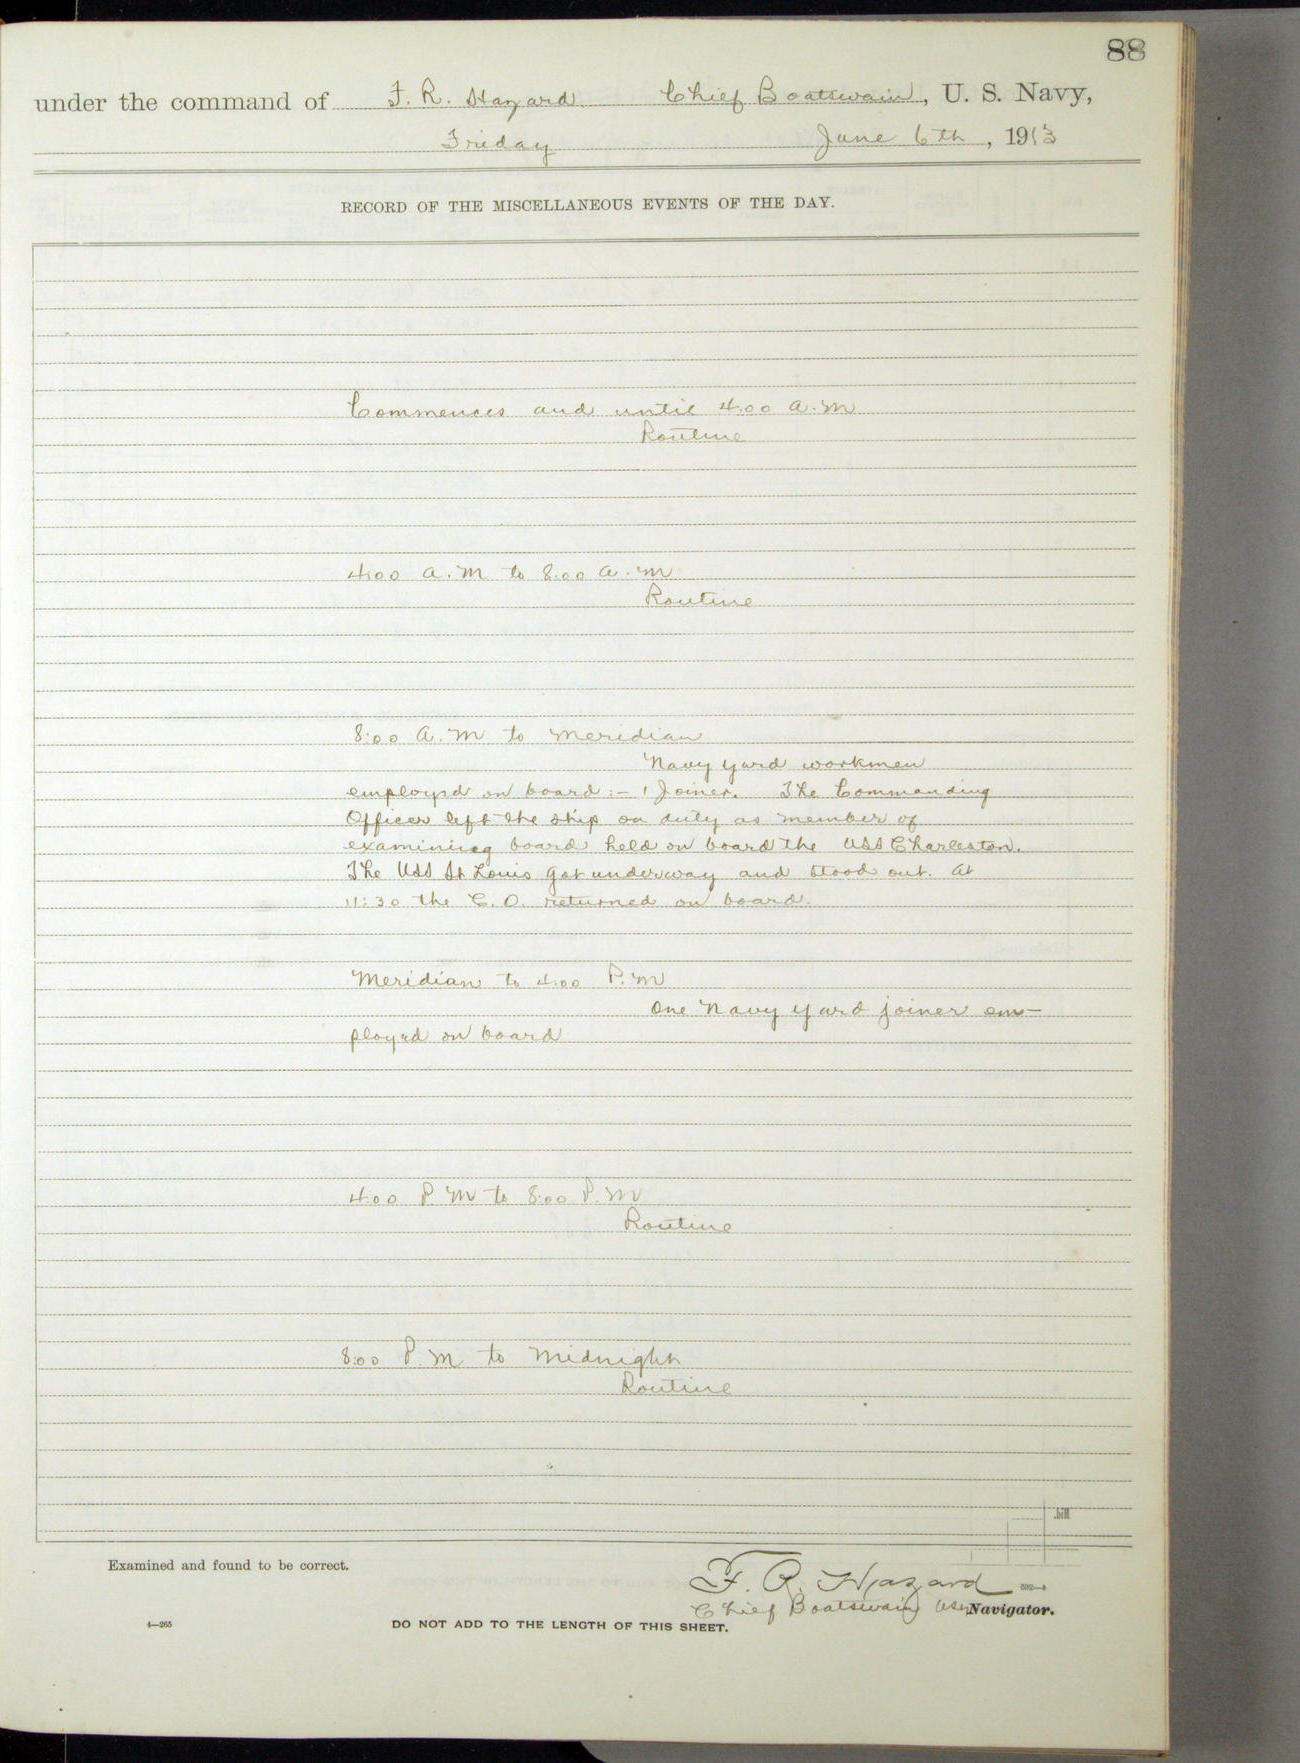 88
under the command of F. R. Hazard Chief Boatswain, U. S. Navy,
Friday June 6th, 1913
RECORD OF THE MISCELLANEOUS EVENTS OF THE DAY.
Commences and until 4:00 a.m
Routine
4:00 a.m to 8:00 a.m
Routine
8:00 a.m to Meridian
Navy yard workmen
employed on board :- 1 Joiner. The Commanding
Officer left the ship on duty as member of
examining board held on board the USS Charleston.
The USS St Louis got underway and stood out. At
11:30 the C. O. returned on board.
Meridian to 4:00 P.M
One Navy yard joiner em-
ployed on board
4:00 P.M to 8:00 P.M
Routine
8:00 P.M to Midnight
Routine
Examined and found to be correct.
F. R. Hazard
Chief Boatswain USN Navigator.
4—265
DO NOT ADD TO THE LENGTH OF THIS SHEET.